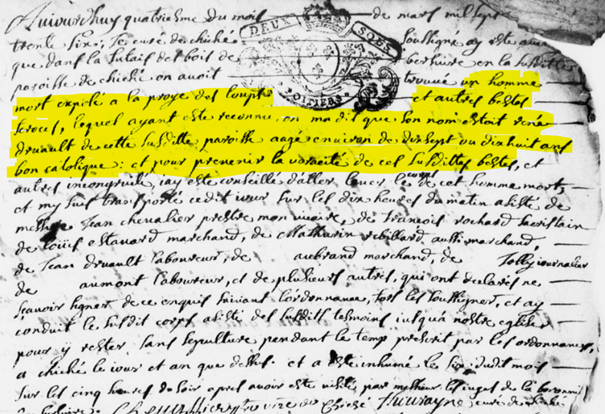 Aujourdhuy quatriesme du mois de mars mil sept
trente six, Je curé de chiché soussigné ay esté
que dans la bois de en la susditte
DEUX SOLS
POITIERS
paroisse de chiché on avoit trouvé un homme
mort exposé a la proye des loups et autres bestes
feroces, lequel ayant esté reconnu, on ma dit que son nom estoit rené
druault de cette susditte paroisse aagé environ de dix sept ou dix huit ans
bon catolique: et pour prevenir la voracité de ces susdittes bestes, et
autres incongruité, jay esté conseillé d'aller lever le corps de cet homme mort,
et my suis transporté cedit jour sur les dix heures du matin assisté de
messire Jean chevalier prestre mon vicaire, de francois rochard sacristain
de estavard marchand, de Mathurin rebillard aussi marchand,
de Jean druault laboureur, de aubrand marchand, de Jolly journalier
de aumont laboureur, et de plusieurs autres, qui ont declarés ne
scavoir signer de ce enquis suivant lordonnance, fors les soussignés, et ay
conduit le susdit corps assisté des susdits tesmoins jusqua nostre eglise
pour y rester sans sepulture pendant le temps prescrit par les ordonnances,
a chiché le jour et an que dessus. et a esté inhumé le six dudit mois
sur les cinq heures du soir apres avoir esté visité par messieurs les juges de la
vicaire de Chiché curé de